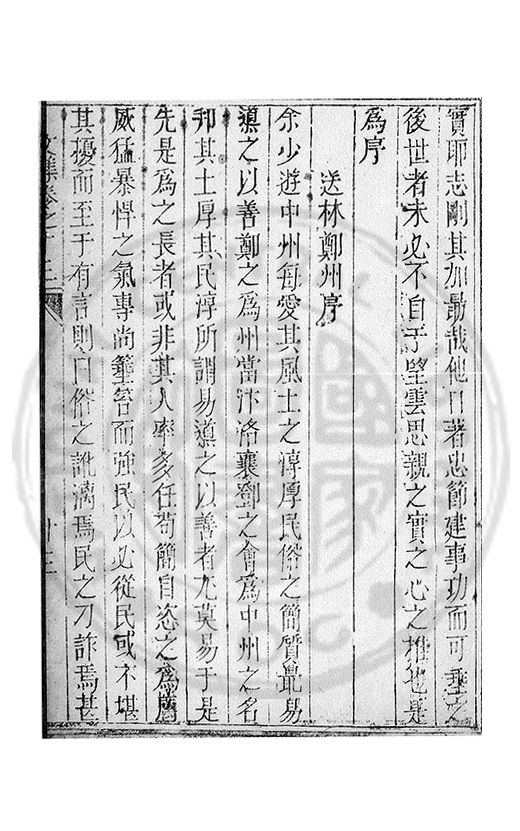 實耶志剛其加勗哉他日著忠節建事功而可垂之
後世者未必不自于望雲思親之實之心之推也是
爲序
送林鄭州序
余少遊中州每愛其風土之淳厚民俗之簡質最易
導之以善鄭之爲州當汴洛襄鄧之會爲中州之名
邦其土厚其民淳所謂易導之以善者尤莫易于是
先是爲之長者或非其人率多任苟簡自恣之爲厲
威猛暴悍之氣專尚箠笞而強民以必從民或不堪
其擾而至于有言則曰俗之訛漓焉民之刀詐焉甚
文集卷之十三
十三